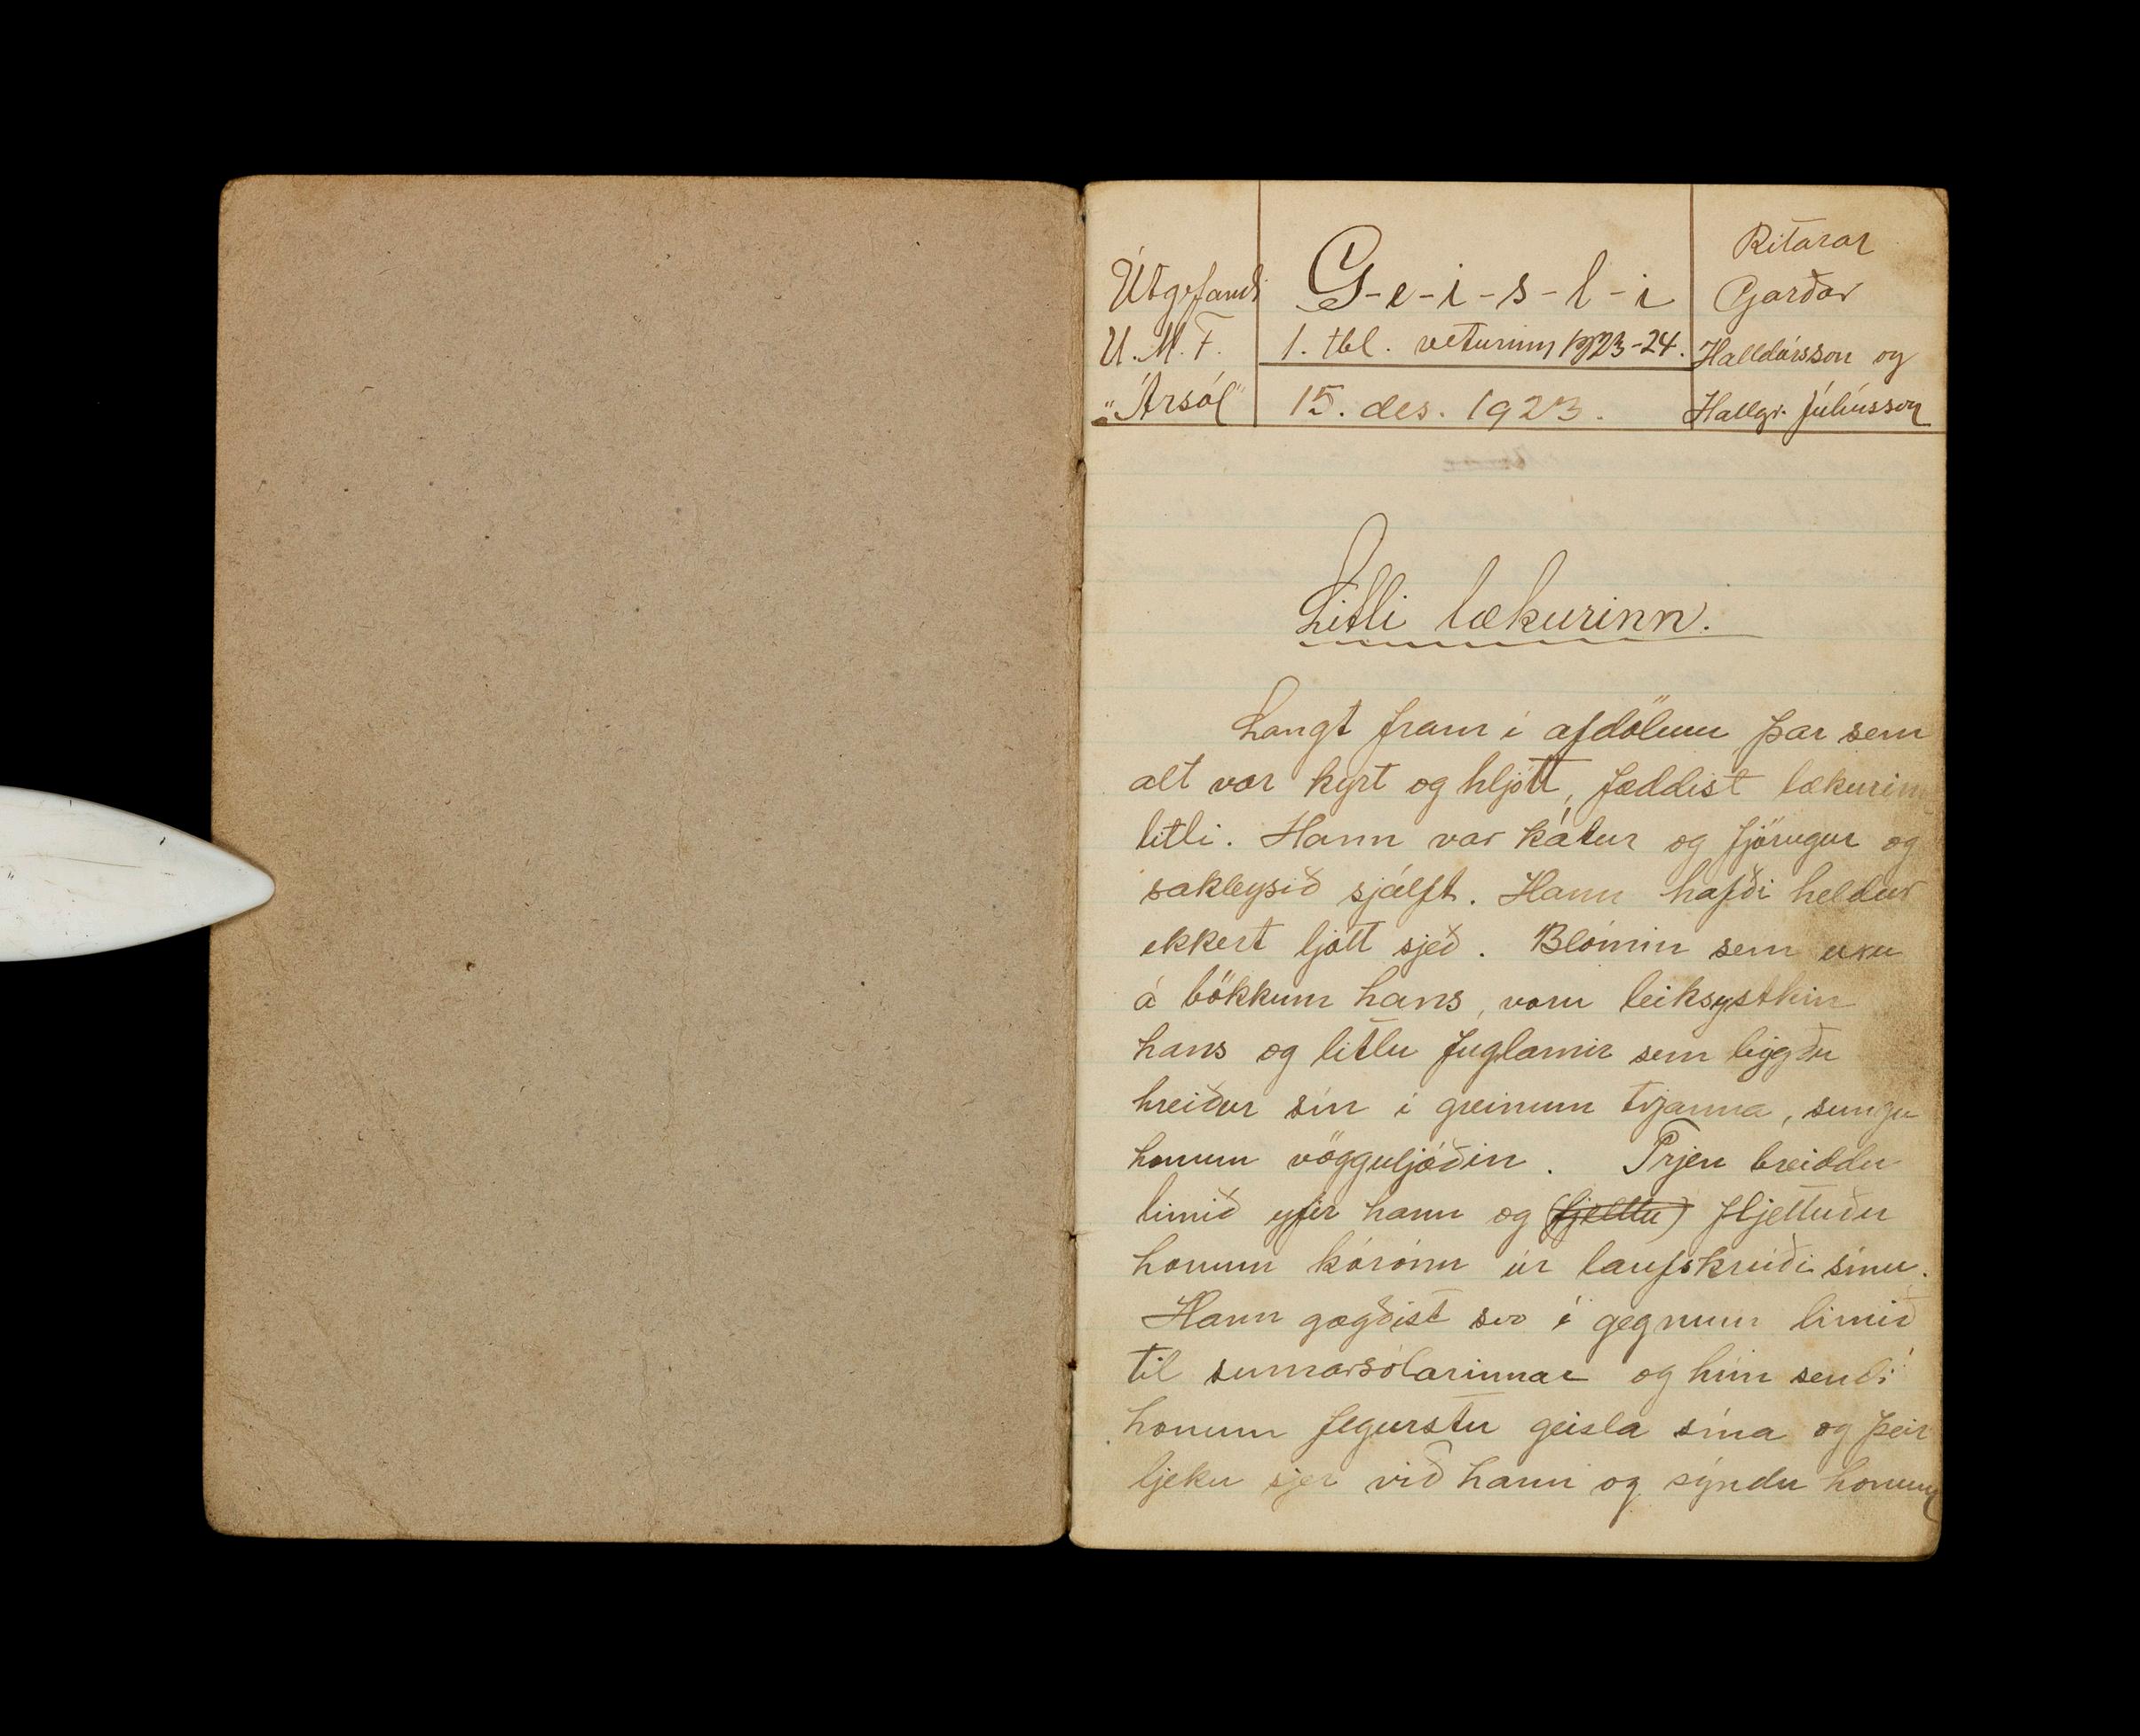 Útgefandi
U.M.F.
"Ársól"
G-e-i-s-l-i
1. tbl. veturinn 1923-24.
15. des. 1923.
Ritarar
Garðar
Halldórsson og
Hallgr. Júlíusson
Litli lækurinn.
Langt fram í afdölum þar sem
alt var kyrt og hljótt, fæddist lækurinn
litli. Hann var kátur og fjörugur og
sakleysið sjálft. Hann hafði heldur
ekkert ljótt sjeð. Blómin sem uxu
á bökkum hans, voru leiksystkin
hans og litlu fuglarnir sem biggðu
hreiður sín í greinum trjanna, sungu
honum vögguljóðin. Trjen breiddu
limið yfir hann og (fjettu) fljettuðu
honum kórónu úr laufskrúði sínu.
Hann gægðist svo í gegnum limið
til sumarsólarinnar og hún sendi
honum fegurstu geisla sína og þeir
ljeku sjer við hann og sýndu honum